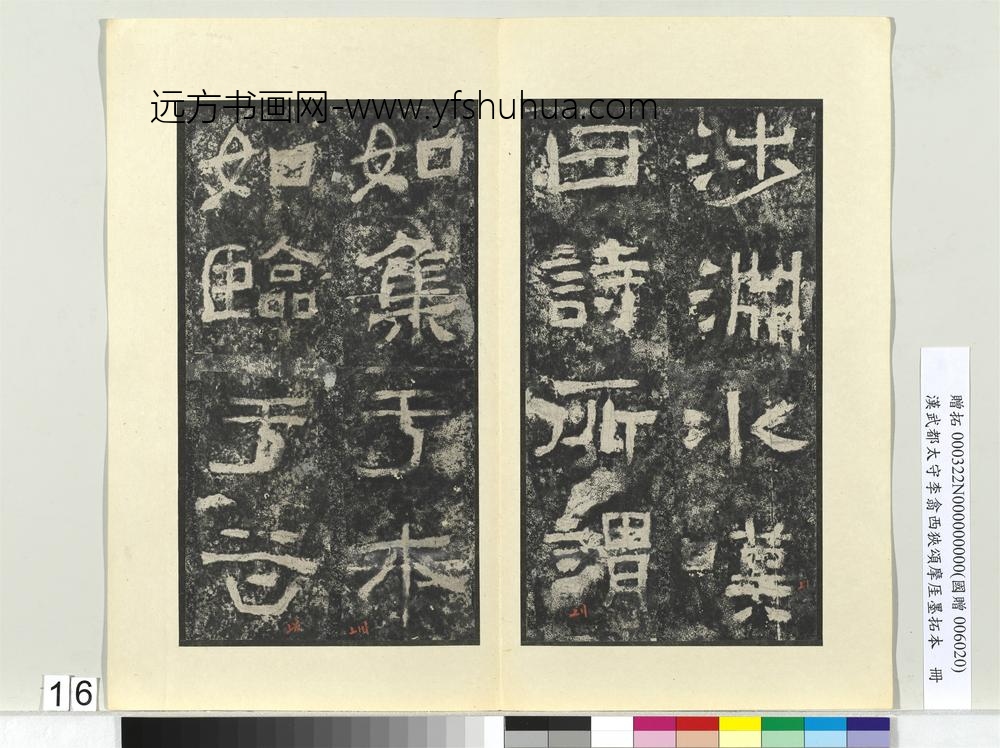 远方书画网-www.yfshuhua.com
涉淵水嘆
曰詩所謂
如集于木
如臨于谷
贈拓 000322N000000000(國贈 006020)
漢武都太守李翕西狹頌摩厓墨拓本 冊
16